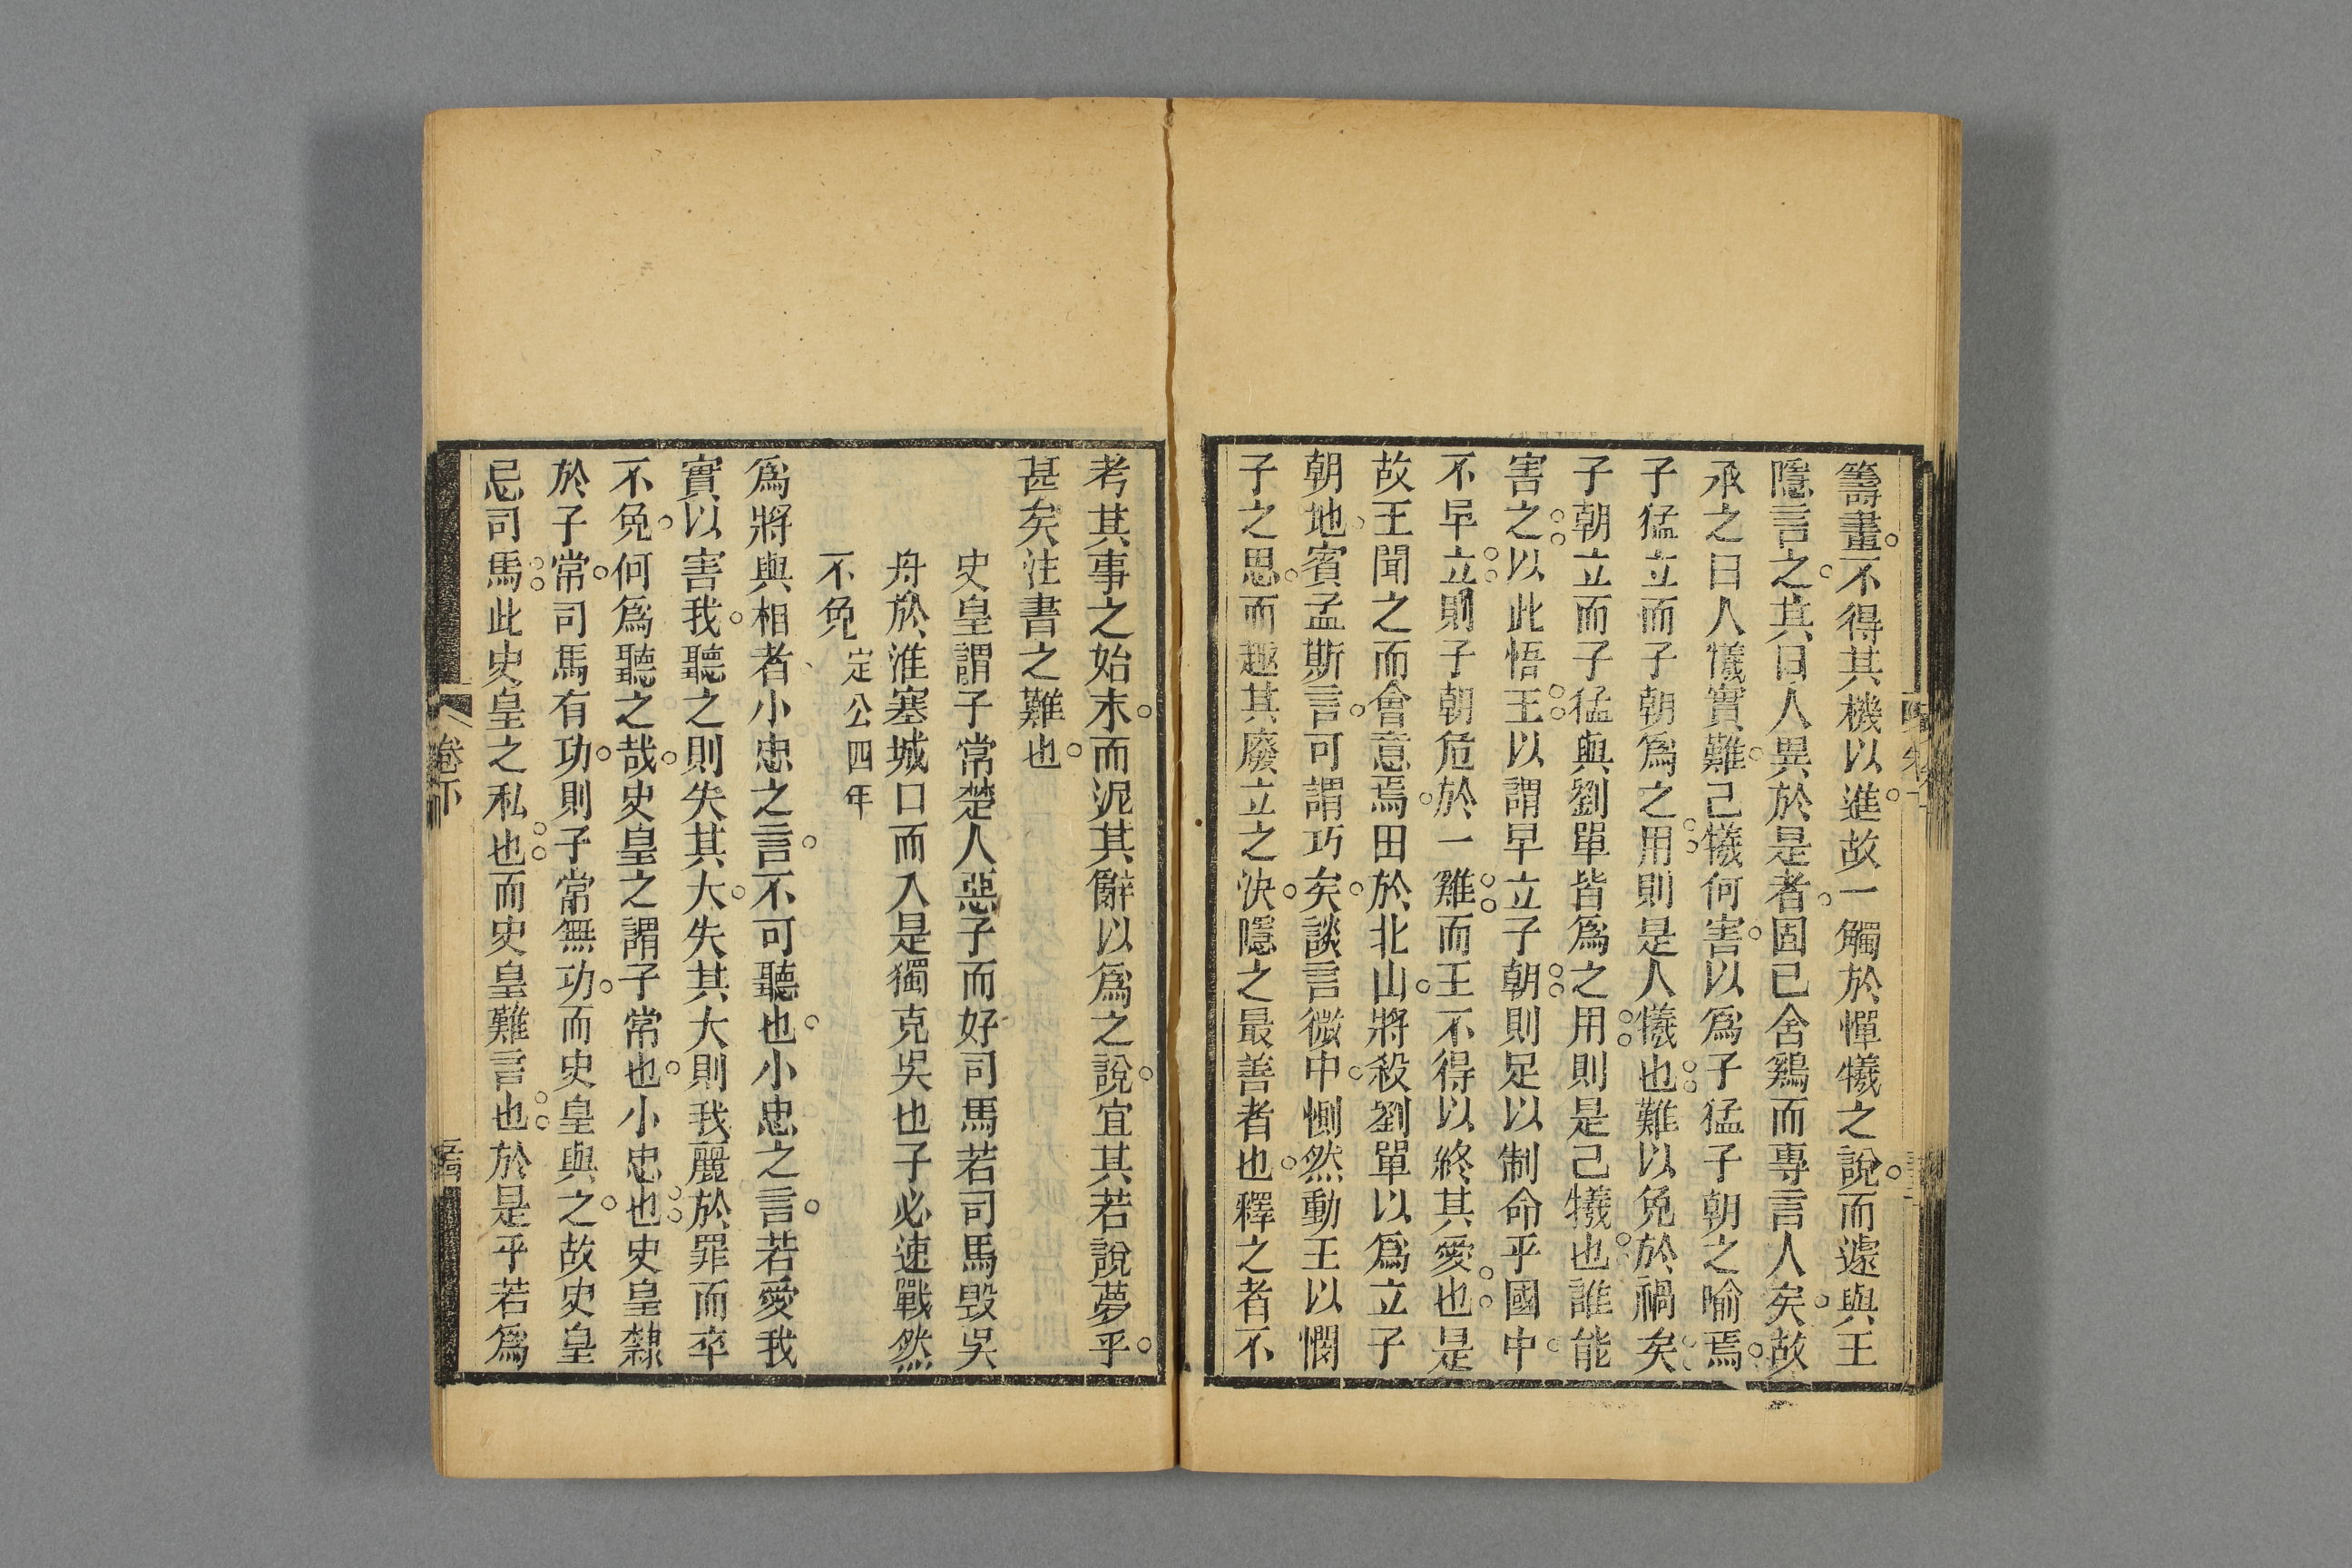 籌畫不得其機以進故一觸於憚犧之說而遽與王
隱言之其曰人異於是者固已舍鷄而專言人矣故
承之曰人犧實難己犧何害以爲子猛子朝之喻焉
子猛立而子朝爲之用則是人犧也難以免於禍矣
子朝立而子猛與劉單皆爲之用則是己犧也誰能
害之以此悟王以謂早立子朝則足以制命乎國中
不早立則子朝危於一雞而王不得以終其愛也是
故王聞之而會意焉田於北山將殺劉單以爲立子
朝地賓孟斯言可謂巧矣談言微中惻然動王以憫
子之思而趣其廢立之決隱之最善者也釋之者不
考其事之始末而泥其辭以爲之說宜其若說夢乎
甚矣注書之難也
史皇謂子常楚人惡子而好司馬若司馬毀吳
舟於淮塞城口而入是獨克吳也子必速戰然
不免 定公四年
爲將與相者小忠之言不可聽也小忠之言若愛我
實以害我聽之則失其大失其大則我麗於罪而卒
不免何爲聽之哉史皇之謂子常也小忠也史皇隸
於子常司馬有功則子常無功而史皇與之故史皇
忌司馬此史皇之私也而史皇難言也於是乎若爲
卷下